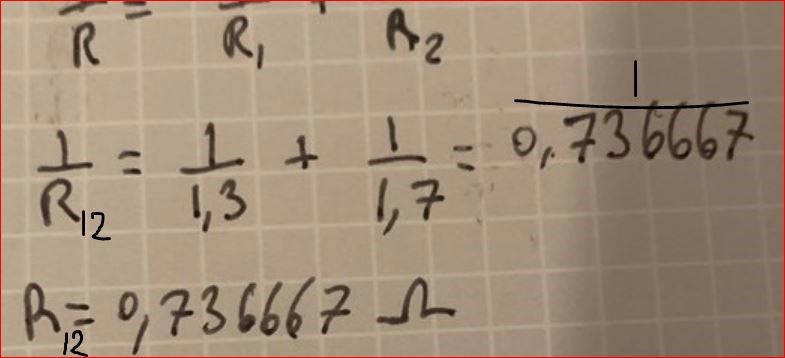 R = R₁ + R₂
1/R₁₂ = 1/1,3 + 1/1,7 = 1/0,736667
R₁₂ = 0,736667 Ω